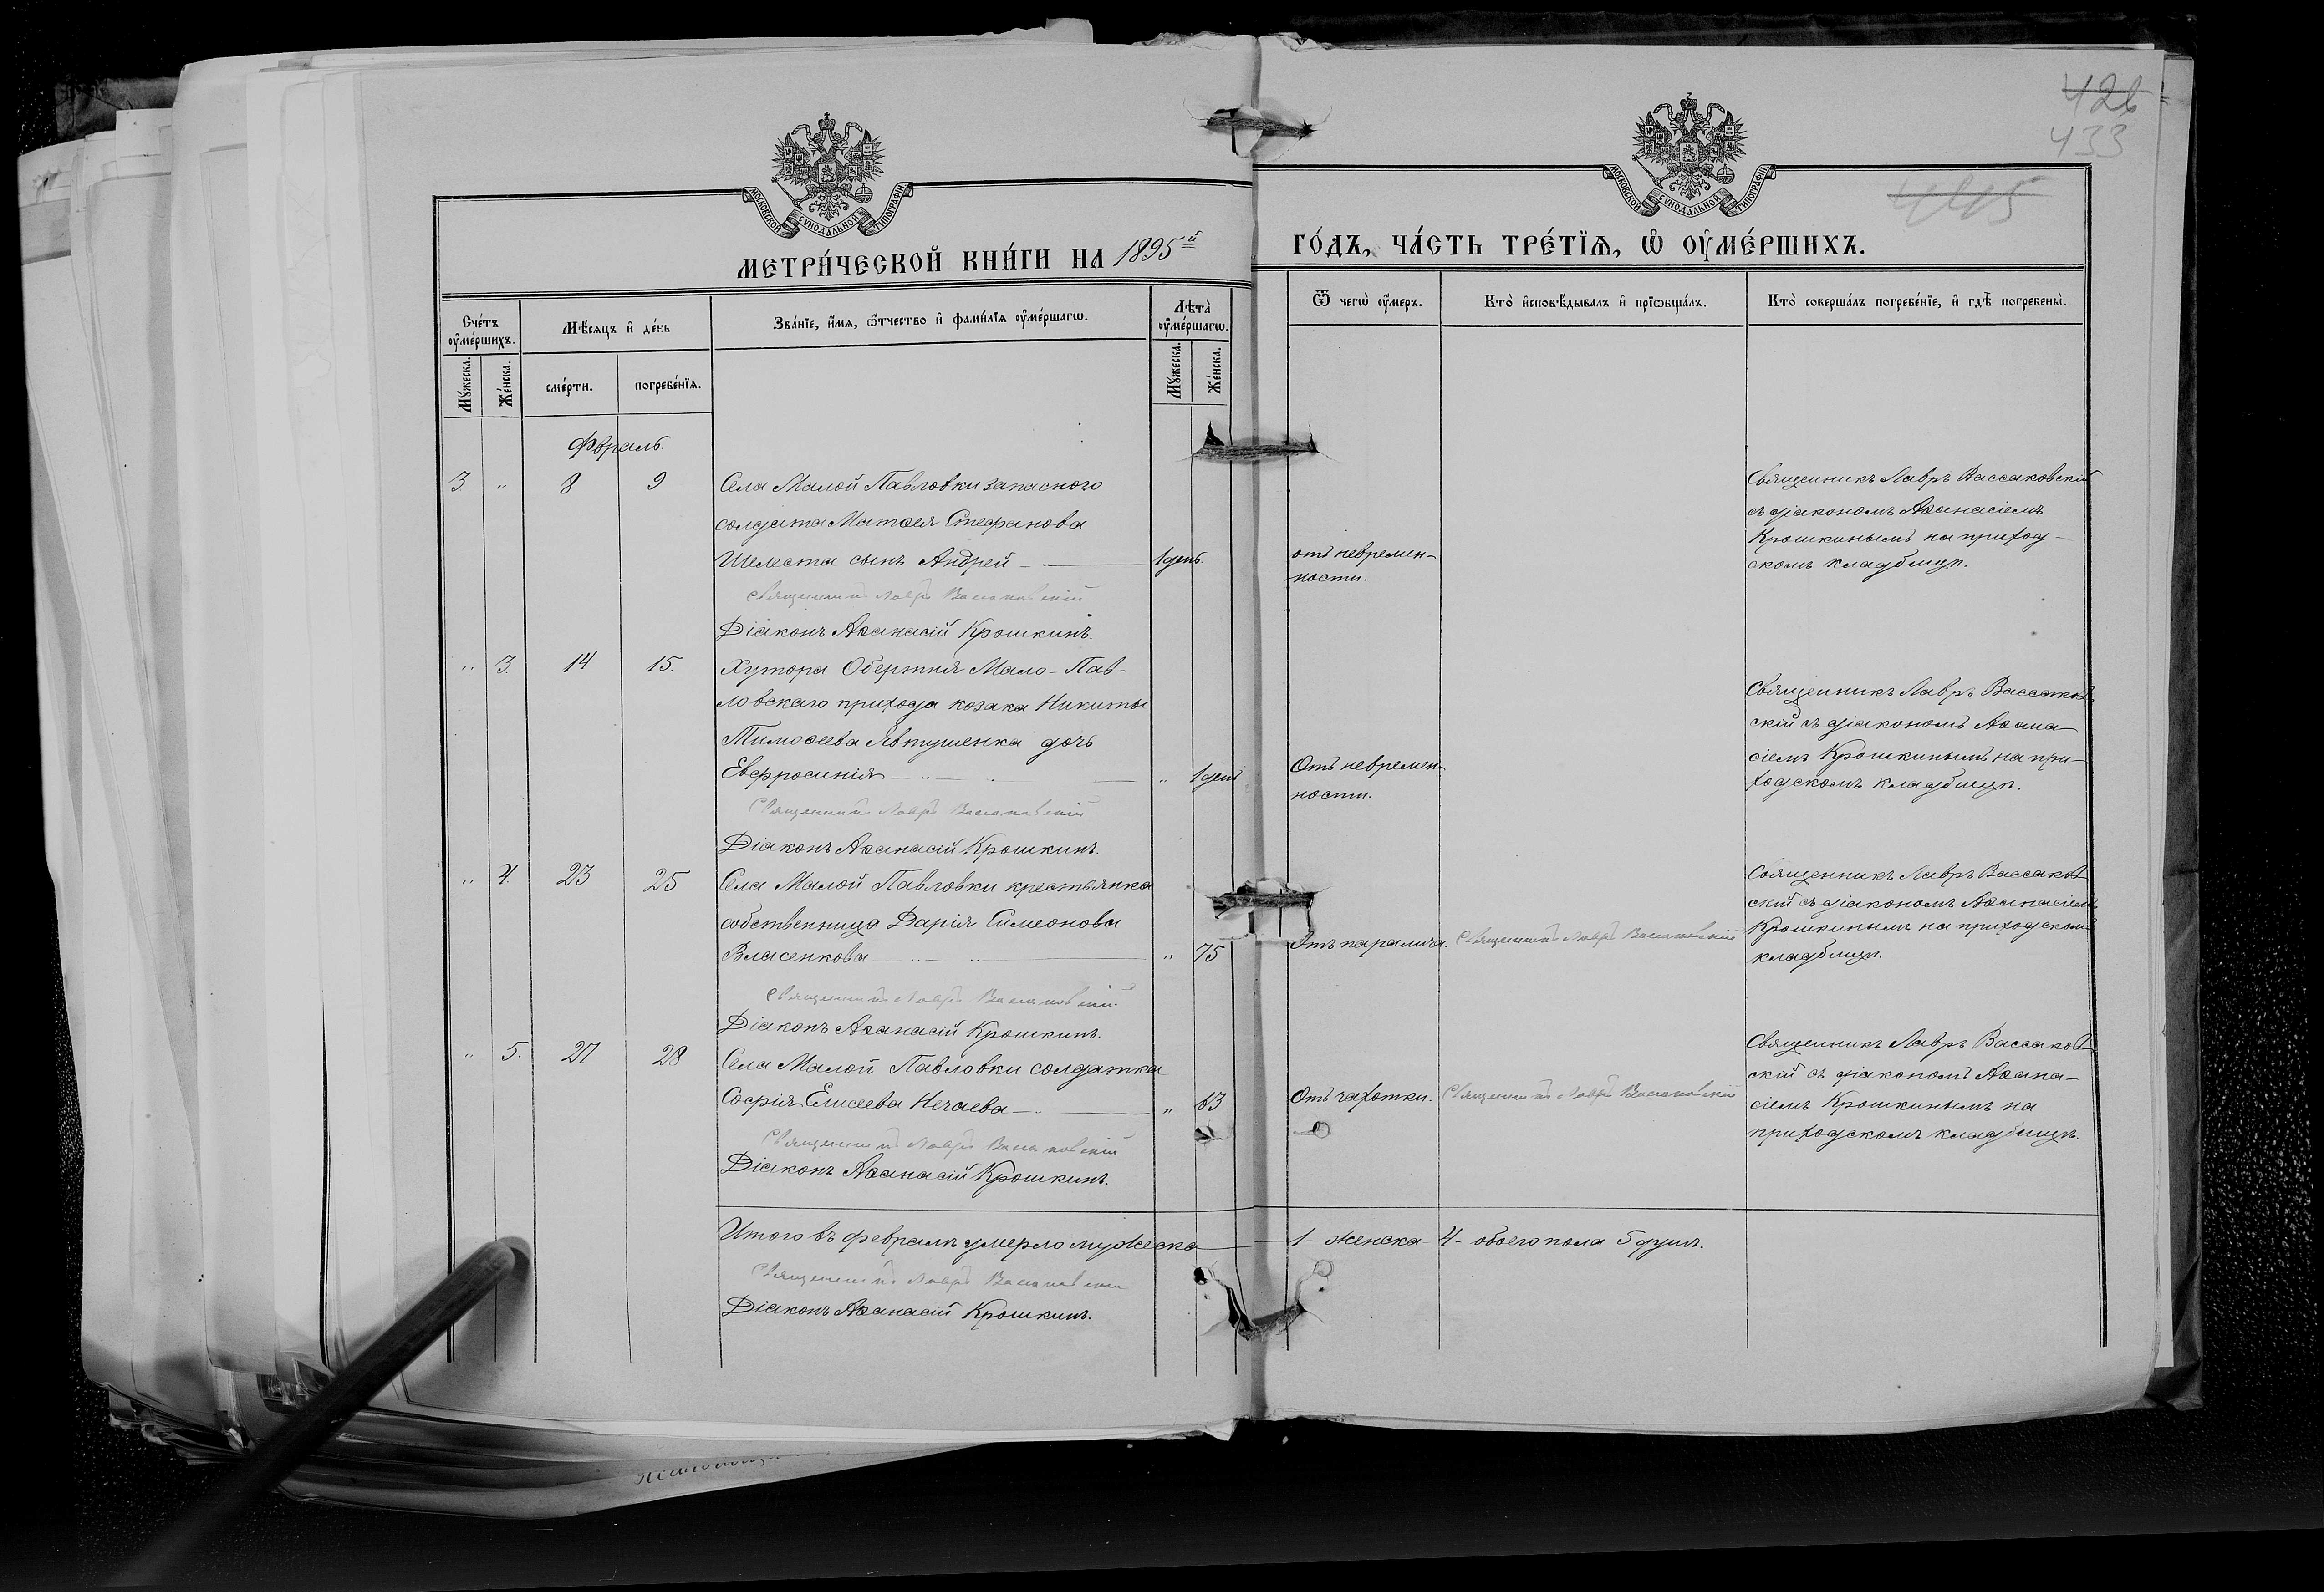 426
433
445
МОСКОВСКОЙ СѴНОДАЛЬНОЙ ТИПОГРАФІИ
МОСКОВСКОЙ СѴНОДАЛЬНОЙ ТИПОГРАФІИ
МЕТРИ́ЧЕСКОЙ КНИ́ГИ НА 1895й ГО́ДЪ, ЧА́СТЬ ТРЕ́ТЇѦ, Ѡ҆ ОУ҆МЕ́РШИХЪ.
Сче́тъ оу҆ме́ршихъ.
Мѣ́сяцъ и҆ де́нь
Зва́нїе, и҆́мѧ, ѻ҆́тчество и҆ фами́лїѧ оу҆ме́ршагѡ.
Лѣта̀ оу҆ме́ршагѡ.
Ѿ чегѡ̀ оу҆́меръ.
Кто̀ и҆сповѣ́дывалъ и҆ прїѡбща́лъ.
Кто̀ соверша́лъ погребе́нїе, и҆ гдѣ̀ погребены̀.
Мꙋ́жеска.
Же́нска.
сме́рти.
погребе́нїѧ.
Мꙋ́жеска.
Же́нска.
Февраль.
3 " 8 9 Села Малой Павловки запасного
солдата Матѳея Стефанова
Шелеста сынъ Андрей 1 день. отъ невремен-
ности.
Священникъ Лавръ Вассаковскій
съ діакономъ Аѳанасіемъ
Крошкинымъ на приход-
скомъ кладбищѣ.
Священникъ Лавръ Вассаковскій
Діаконъ Аѳанасій Крошкинъ.
" 3. 14 15. Хутора Обертня Мало-Пав-
ловскаго прихода козака Никиты
Тимоѳеева Явтушенка дочь
Евфросинія " 1 день Отъ невремен-
ности.
Священникъ Лавръ Вассаков-
скій съ діакономъ Аѳана-
сіемъ Крошкинымъ на при-
ходскомъ кладбищѣ.
Священникъ Лавръ Вассаковскій
Діаконъ Аѳанасій Крошкинъ.
" 4. 23 25 Села Малой Павловки крестьянка
собственница Дарія Симеонова
Власенкова " 75 Отъ паралича. Священникъ Лавръ Вассаковскій
Священникъ Лавръ Вассаков-
скій съ діакономъ Аѳанасіемъ
Крошкинымъ на приходскомъ
кладбищѣ.
Священникъ Лавръ Вассаковскій
Діаконъ Аѳанасій Крошкинъ.
" 5. 27 28 Села Малой Павловки солдатка
Софія Елисеева Нечаева " 83 Отъ чахотки. Священникъ Лавръ Вассаковскій
Священникъ Лавръ Вассаков-
скій съ діакономъ Аѳана-
сіемъ Крошкинымъ на
приходскомъ кладбищѣ.
Священникъ Лавръ Вассаковскій
Діаконъ Аѳанасій Крошкинъ.
Итого въ февралѣ умерло мужеска 1 - женска - 4 - обоего пола 5 душъ.
Священникъ Лавръ Вассаковскій
Діаконъ Аѳанасій Крошкинъ.